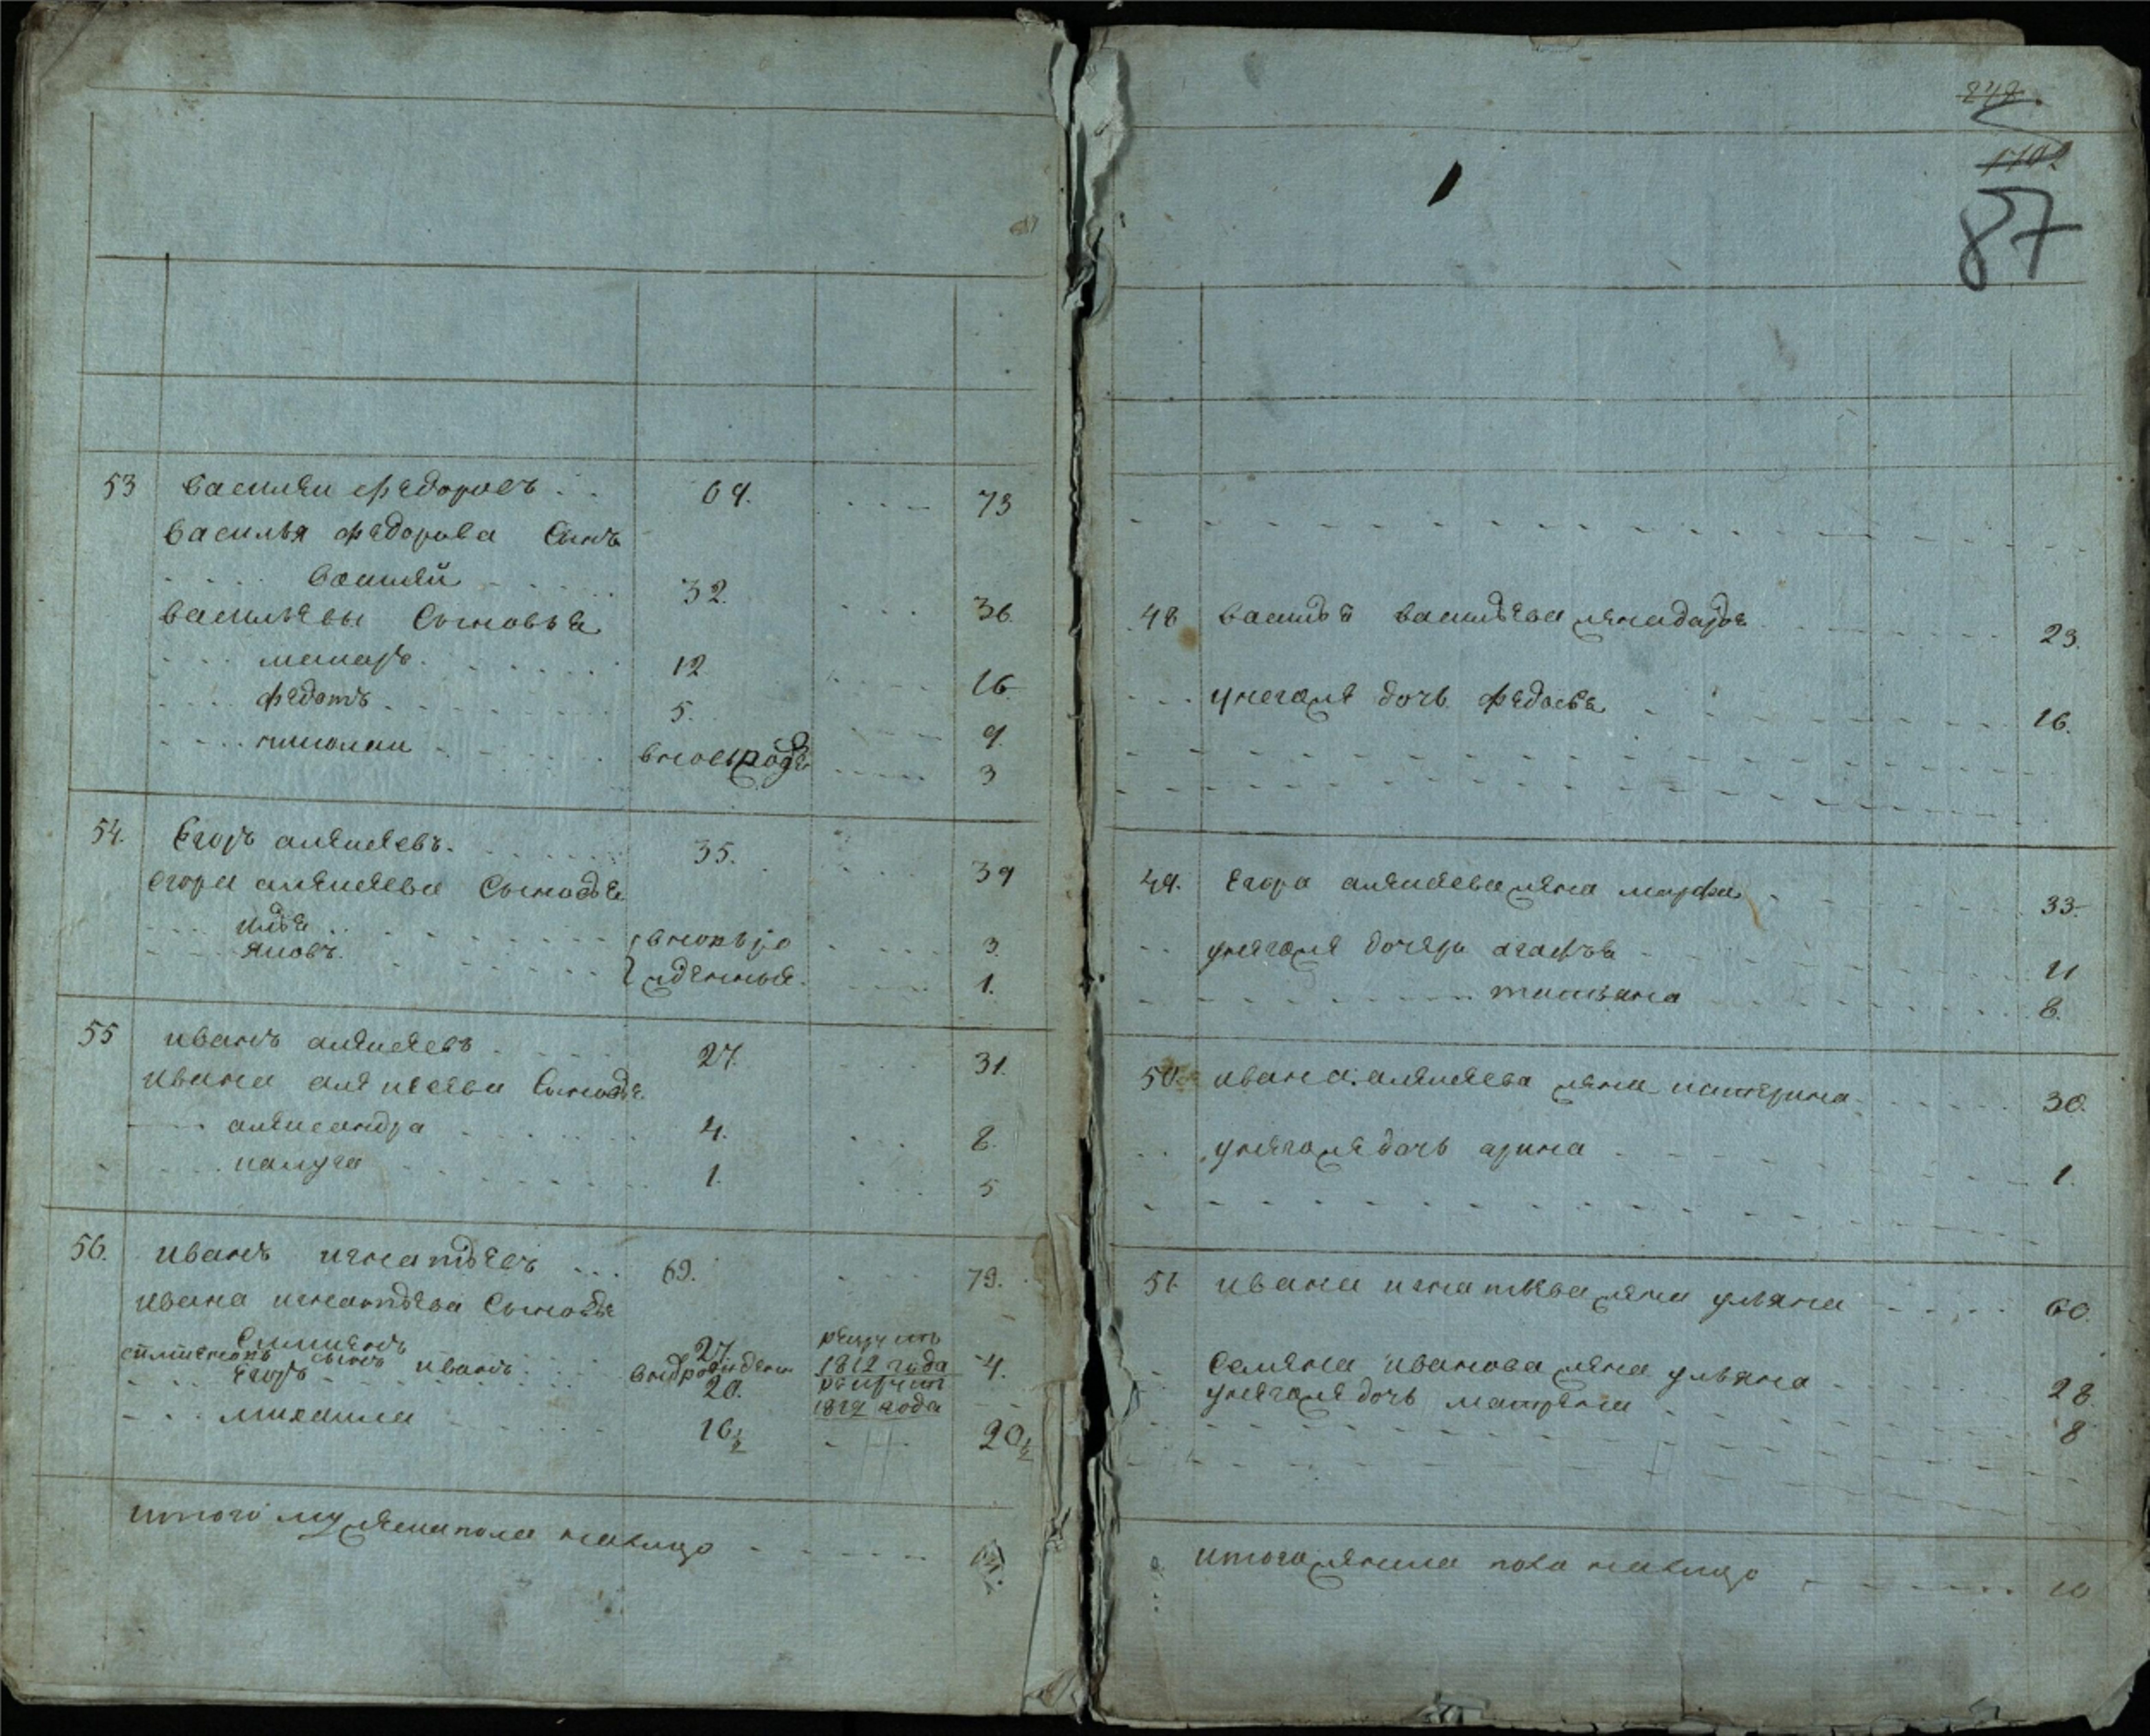 87
53 Василеи Федоровъ 69. 73
Василья Федорова Сынъ
Василей 32. 36.
Васильевы Сыновья
макаръ 12 16
Федотъ 5. 9.
николаи вновьрожде 3
54. Егоръ алексеевъ. 35. 39
Егора алексеева Сыновья
илья вновь ро 3.
яковъ. жденные. 1.
55 иванъ алексеевъ 27. 31.
ивана алексеева Сыновья
александра 4. 8.
1. 5
56. иванъ игнатьевъ 69. 73.
ивана игнатьева Сыновья
Симионъ 27 рекрутъ
Сынъ иванъ 1812 года 4.
Егоръ 20. рекрутъ
1812 года
михаила 16½ 20½
итого мужеска пола налицо
48 Василья Васильева жена дарья 23.
унегоже дочь Федосья 16.
49. Егора алексеева жена марфа 33.
унегоже дочери агафья 11
татьяна 8.
50. ивана алексеева жена катерина 30.
унегоже дочь арина 1.
51. ивана игнатьева жена ульяна 60.
Семена иванова жена ульяна 28.
унегоже дочь матрена 8
итого женска пола налицо 10